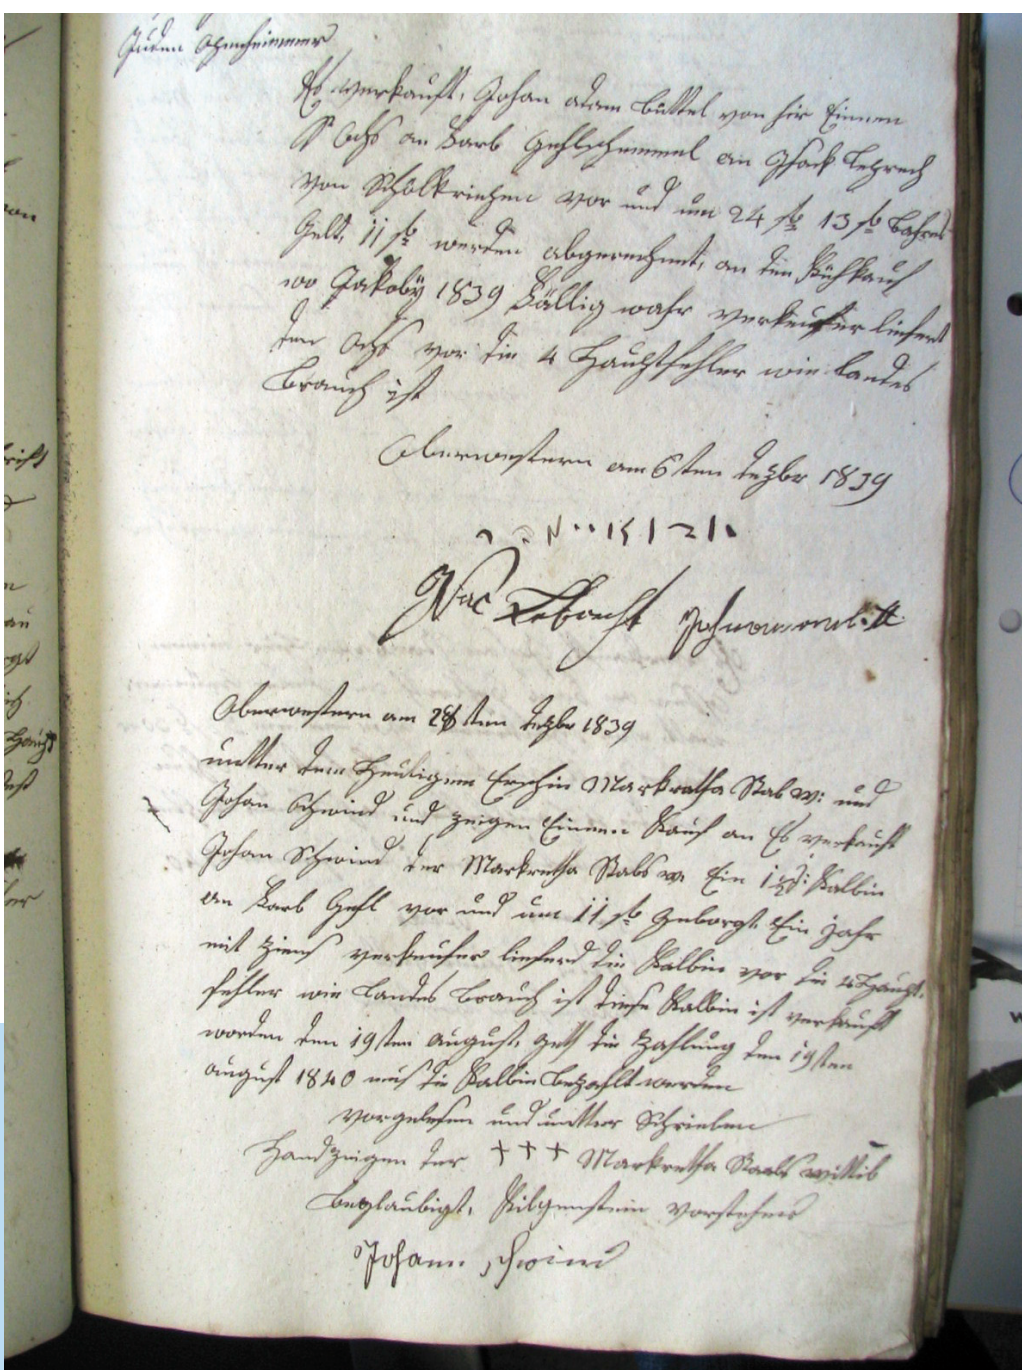 Juden Openheimmer
Es verkauft, Johan adam büttel von hir Einnen
Ochs an Farb Gehlschemmel an Isack Leprech
von Schölkriepen vor und um 24 fl 13 fl bahres
Geld, 11 fl werden abgerechnet, an den Kühkauf
wo Jakoby 1839 Fällig wahr verkeufer liefert
den Ochs vor die 4 Hauptfehler wie landes
brauch ist
Oberwestern am 6ten Dezbr 1839
Isac Lebrecht
Oberwestern am 28ten Dezbr 1839
untter dem Heutigem Erschin Markretha Stab w: und
Johan Schwind und zeigen Einnen Kauf an Es verkauft
Johan Schwind der Markretha Stabs w: Ein Kalbin
an Farb Gehl vor und um 11 fl geborgt Ein jahr
mit Ziens verkeufer lieferd die Kalbin vor die 4 Haupt-
fehler wie landes brauch ist diese Kalbin ist verkauft
worden den 19ten august, Zahlung den 19ten
august 1840 mus die Kalbin bezahlt werden
vorgelesen und untter Schrieben
Handzeigen der +++ Markretha Staabs wittib
beglaubigt, Kilgenstein Vorsteher
Johann Schwind